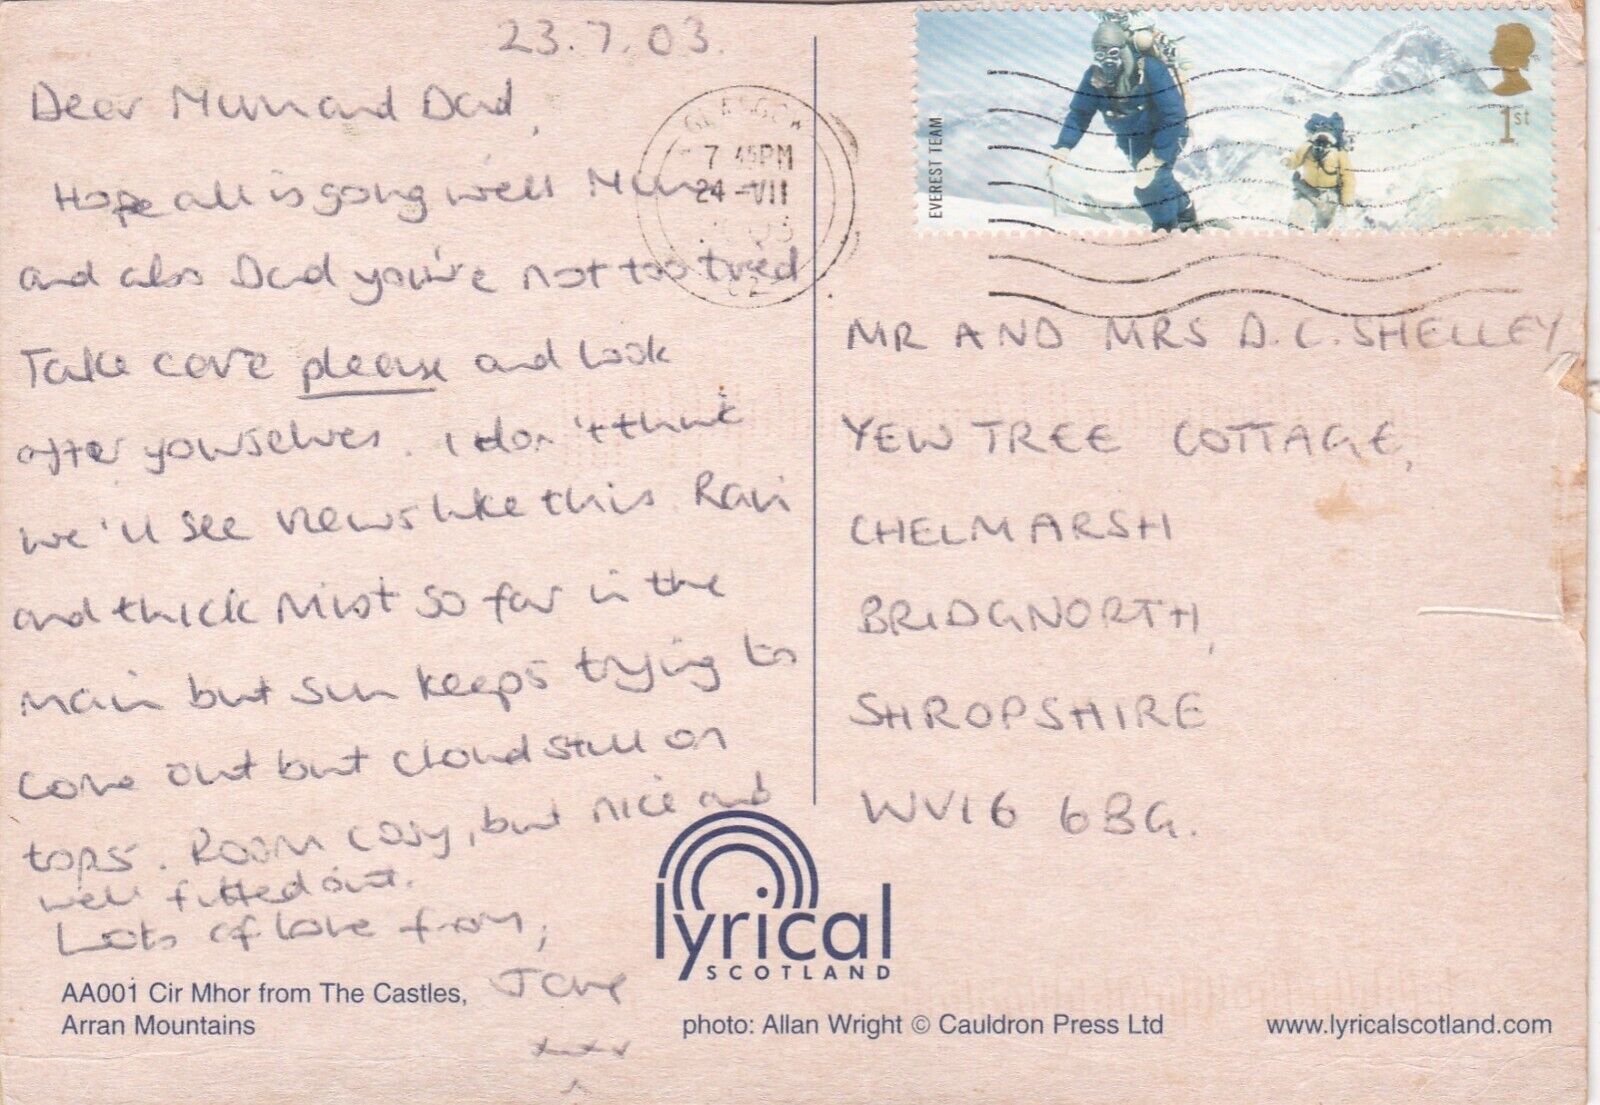 23.7.03.
Dear Mum and Dad,
Hope all is going well Mum
and also Dad you're not too tired
Take care please and look
after yourselves. I don't think
we'll see views like this. Rain
and thick mist so far in the
main but sun keeps trying to
come out but cloud still on
tops. Room cosy, but nice and
well fitted out.
Lots of love from,
Jane
xxxx
x
AA001 Cir Mhor from The Castles,
Arran Mountains
GLASGOW
7 45PM
24-VII
EVEREST TEAM
1st
MR AND MRS D.C. SHELLEY,
YEW TREE COTTAGE,
CHELMARSH
BRIDGNORTH,
SHROPSHIRE
WV16 6BG.
lyrical
SCOTLAND
photo: Allan Wright © Cauldron Press Ltd
www.lyricalscotland.com